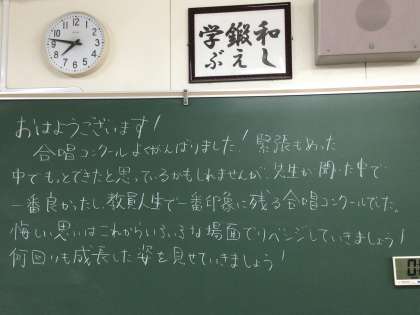 和し
鍛え
学ぶ
おはようございます!
合唱コンクールよくがんばりました! 緊張もあった
中でもっとできたと思っているかもしれませんが、先生が聞いた中で
一番良かったし、教員人生で一番印象に残る合唱コンクールでした。
悔しい思いはこれからいろいろな場面でリベンジしていきましょう!
何回りも成長した姿を見せていきましょう!